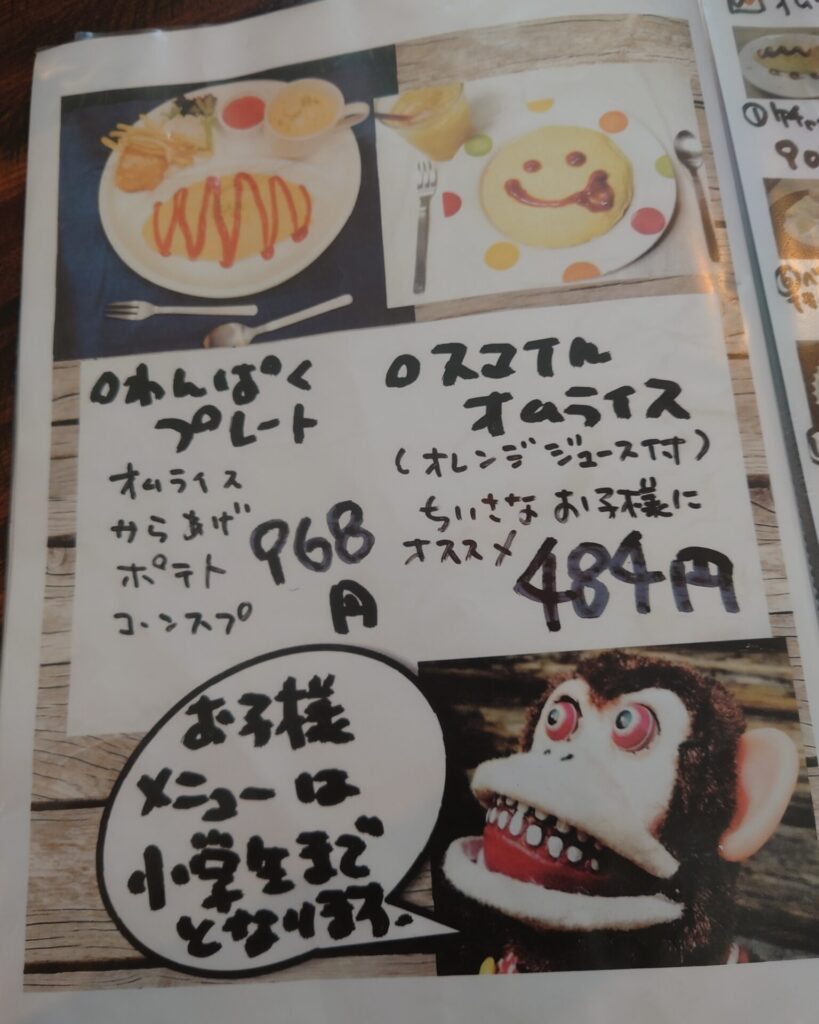 わんぱく
プレート
オムライス
からあげ
ポテト
コーンスプ
968
円
スマイル
オムライス
(オレンジジュース付)
ちいさなお子様に
オススメ
484円
お子様
メニューは
小学生まで
となります。